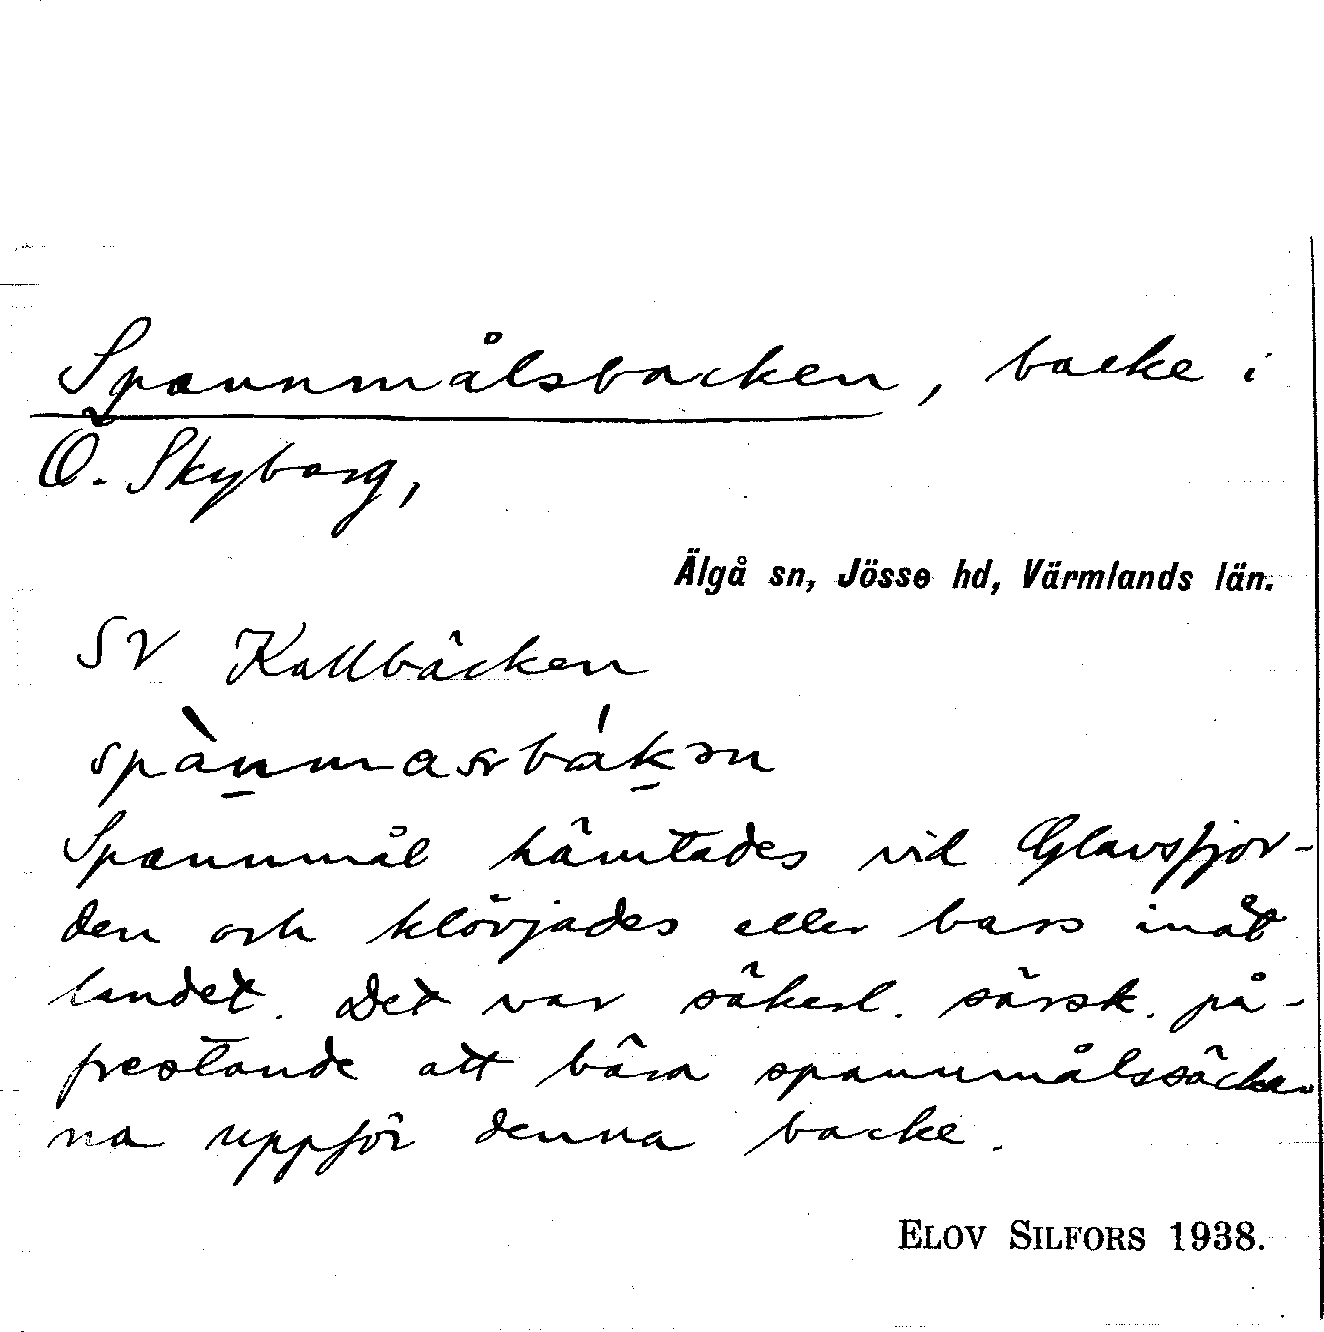 Spannmålsbacken, backe i
Ö. Skyborg,
Älgå sn, Jösse hd, Värmlands län.
SV Kallbäcken
Spannmål hämtades vid Glavsfjor-
den och klövjades eller bars inåt
landet. Det var säkerl. särsk. på-
frestande att bära spannmålssäckar
na uppför denna backe.
ELOV SILFORS 1938.